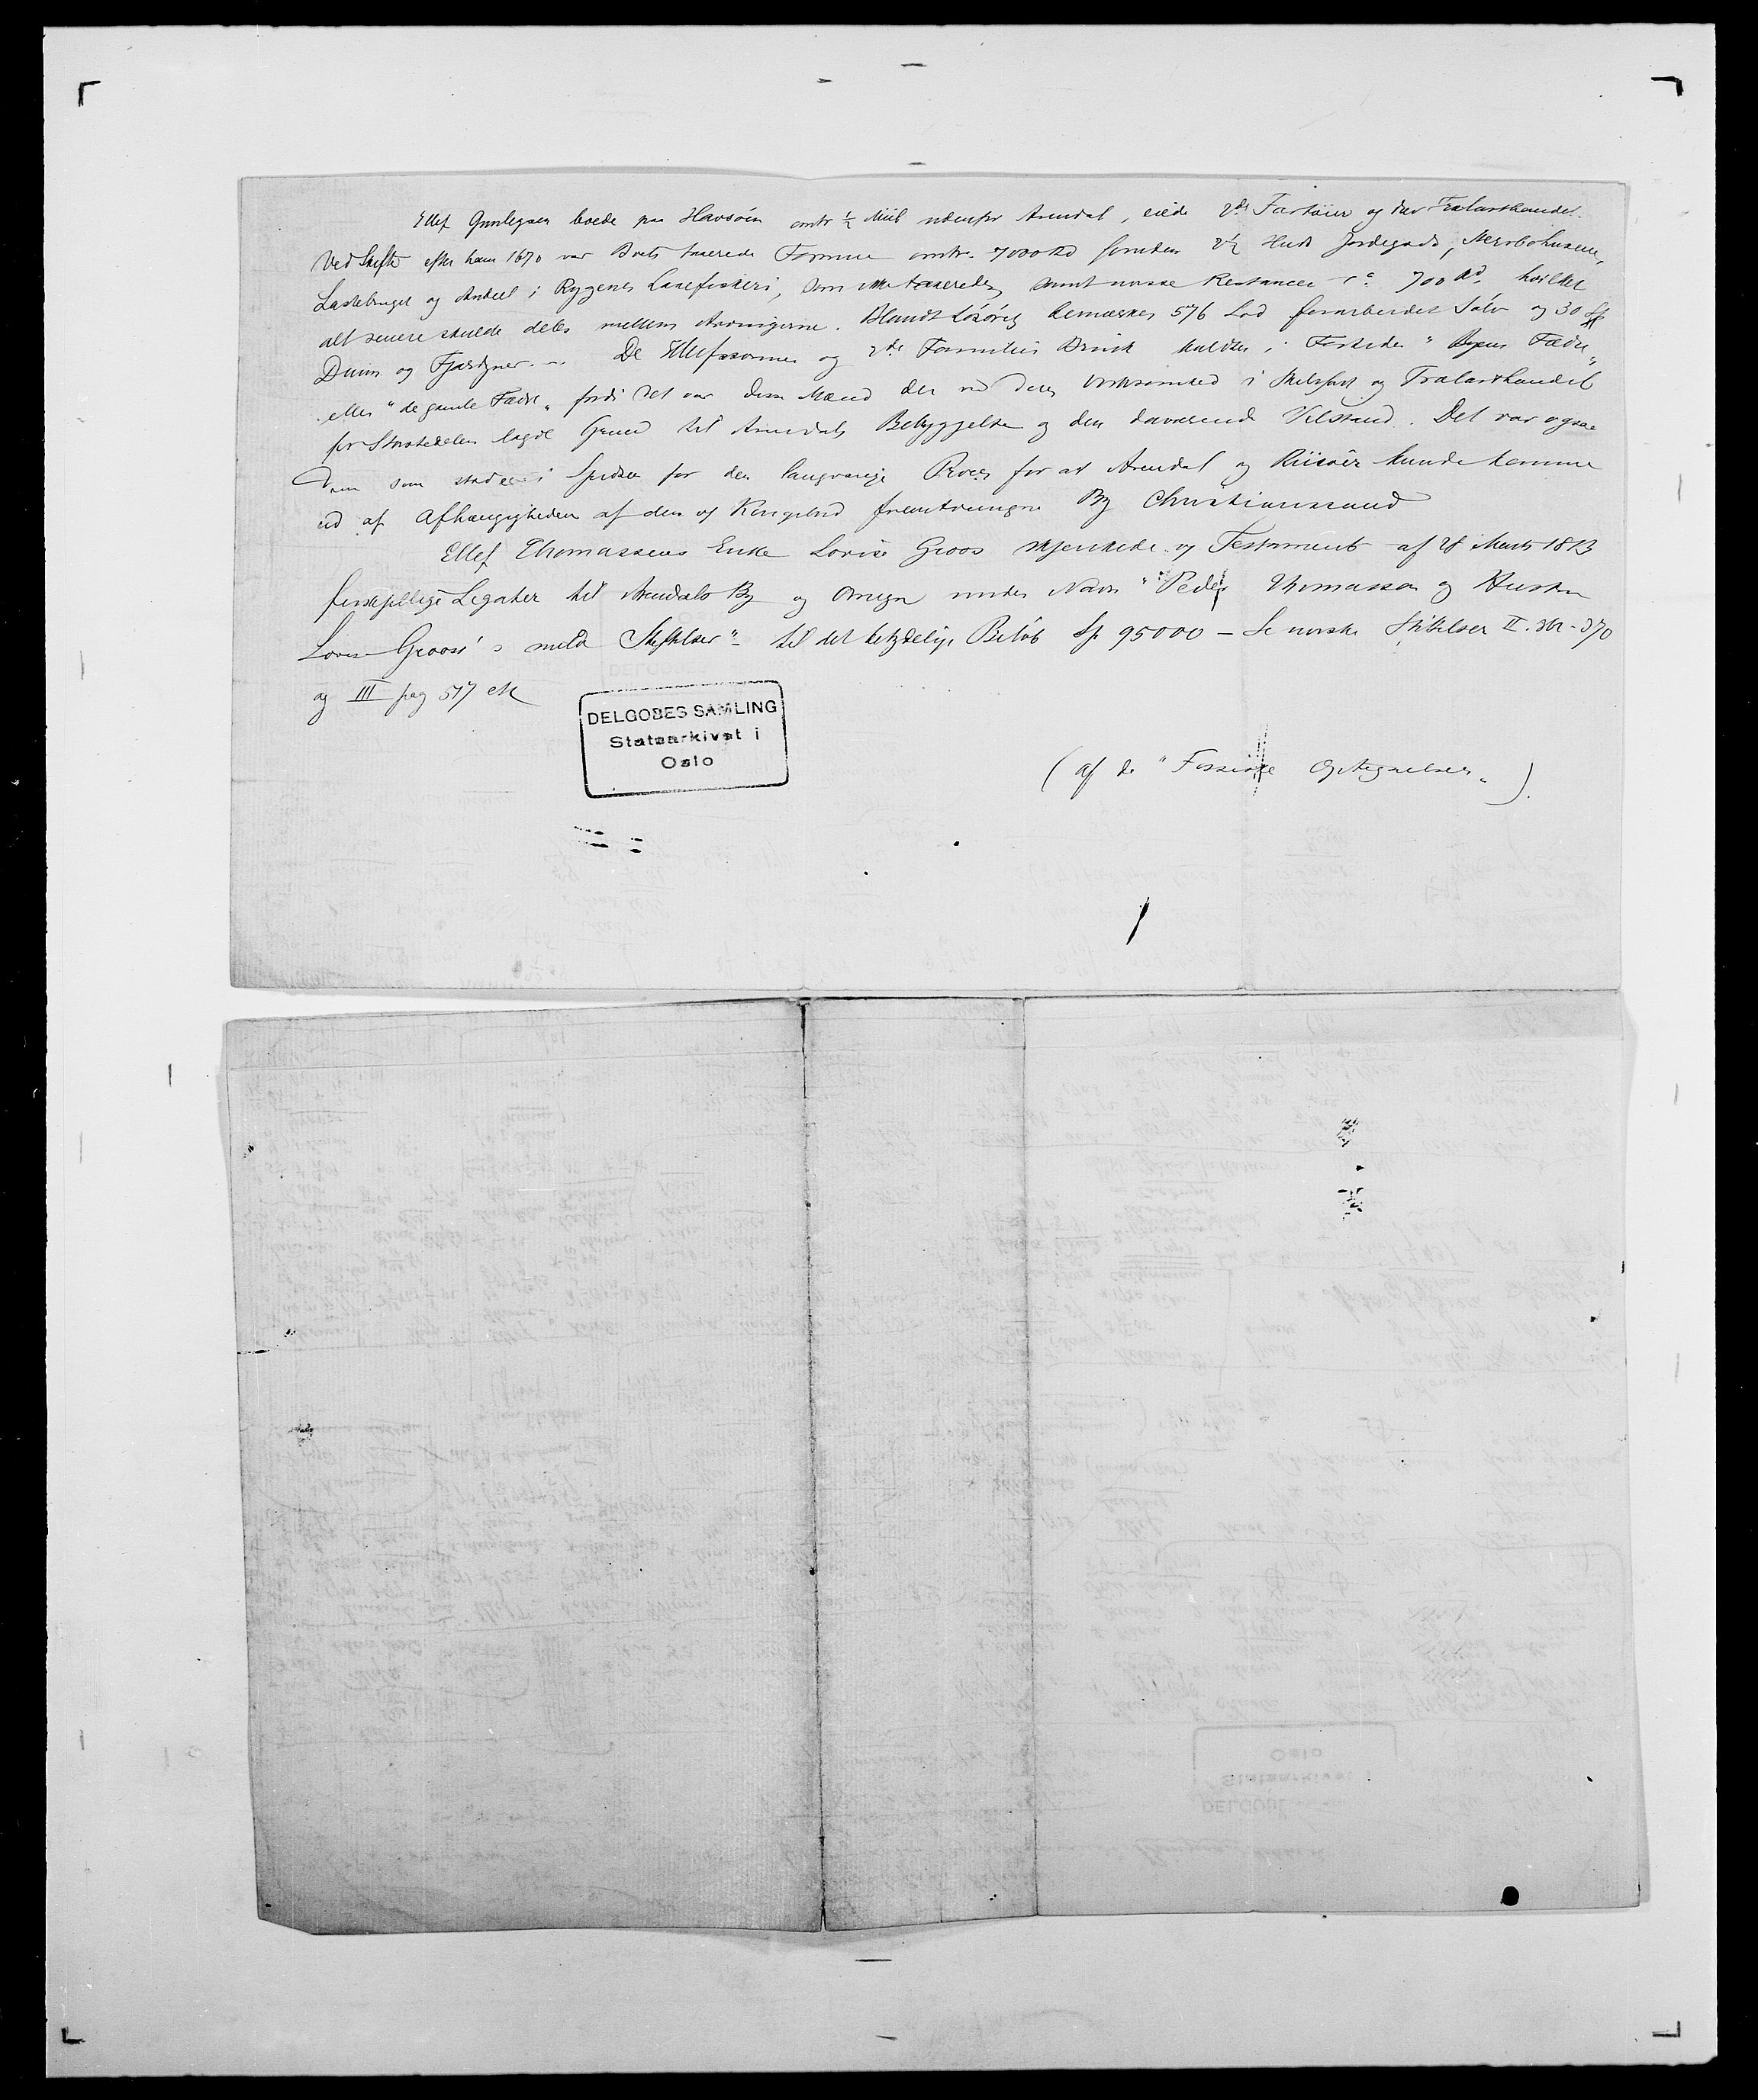 Ellef Gunlegsen boede paa Havsöen omtr ½ Miil udenfor Arendal, eiede Fartöier og drev Trælasthandel.
Ved Skifte efter ham 1670 var Boets taxerede Formue omtr. 7000 Rd foruden Huds Jordegods, Merdöhusene,
Lastebruget og Andeel i Rygenes Laxefiskeri, som ikke taxeredes samt visse Restancer ca 700 Rd. hvilket
alt senere skulde deles mellem Arvingerne. Blandt Lösöret bemærkes 576 Lod forarbeidet Sölv og 30 Spk
Duun og Fjærdyner. — De Ellefssönner og Familien Brinck kaldtes i Fortiden "Byens Fædre"
eller "de gamle Fædre" fordi det var disse Mænd der ved deres Virksomhed i Skibsfart og Trælasthandel
for Störstedelen lagde Grund til Arendals Bebyggelse og den daværende Velstand. Det var ogsaa
Dem som stode i Spidsen for den langvarige Proces for at Arendal og Riisöer kunde komme
ud af Afhængigheden af den ved Kongebud fremtvungne By Christianssand
Ellef Thomassens Enke Lovise Groos skjenkede ved Testament af 28 Marts 1823
forskjellige Legater til Arendals By og Omegn under Navn "Peder Thomassen og Hustru
Lovise Grooss's milde Stiftelser" — til det betydelige Belöb Sp 95000 — Se norske Stiftelser II. 361-370
og III pag 517 etc
DELGOBES SAMLING
Statsarkivet i
Oslo
(af de "Fossiske Optegnelser").